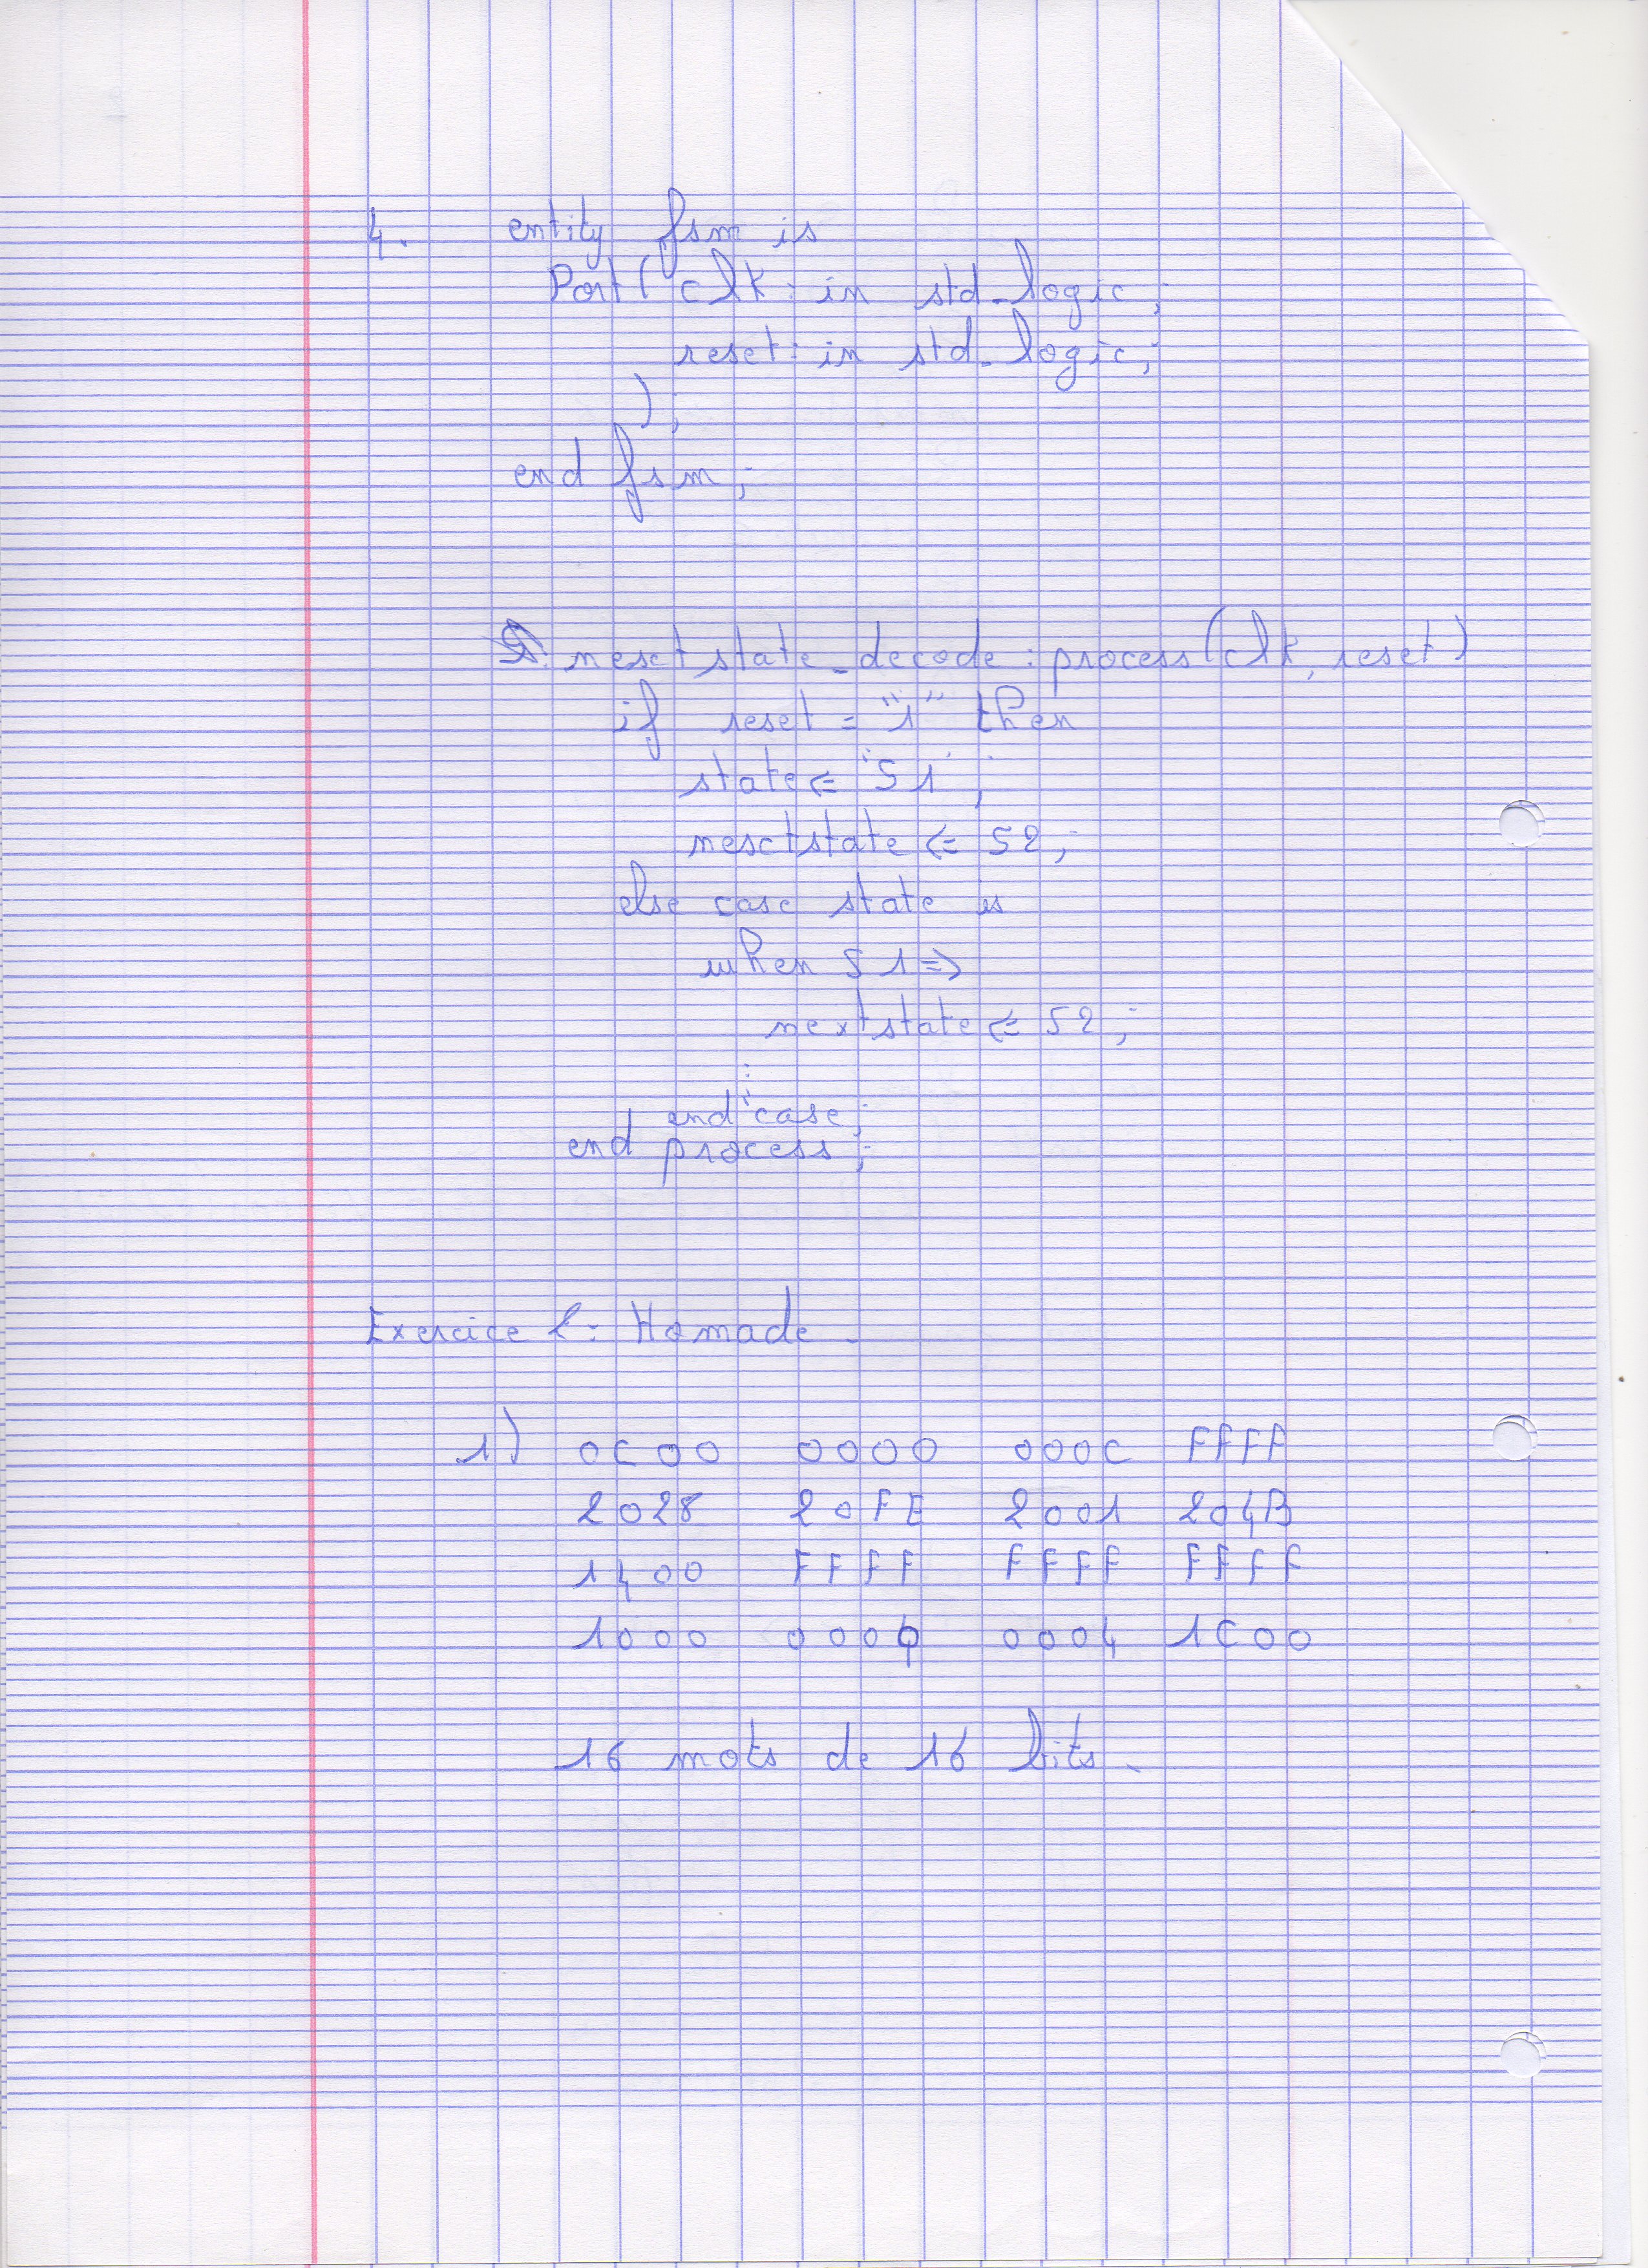 4. entity fsm is
Port( clk : in std_logic ;
reset : in std_logic ;
) ;
end fsm ;
nextstate_decode : process(clk, reset)
if reset = "1" then
state <= 'S1' ;
nextstate <= S2 ;
else case state is
when S1 =>
nextstate <= S2 ;
:
end case ;
end process ;
Exercice 2 : Homade .
1) 0C00 0000 000C FFFF
2028 20FE 2001 204B
1400 FFFF FFFF FFFF
1000 0000 0004 1C00
16 mots de 16 bits .